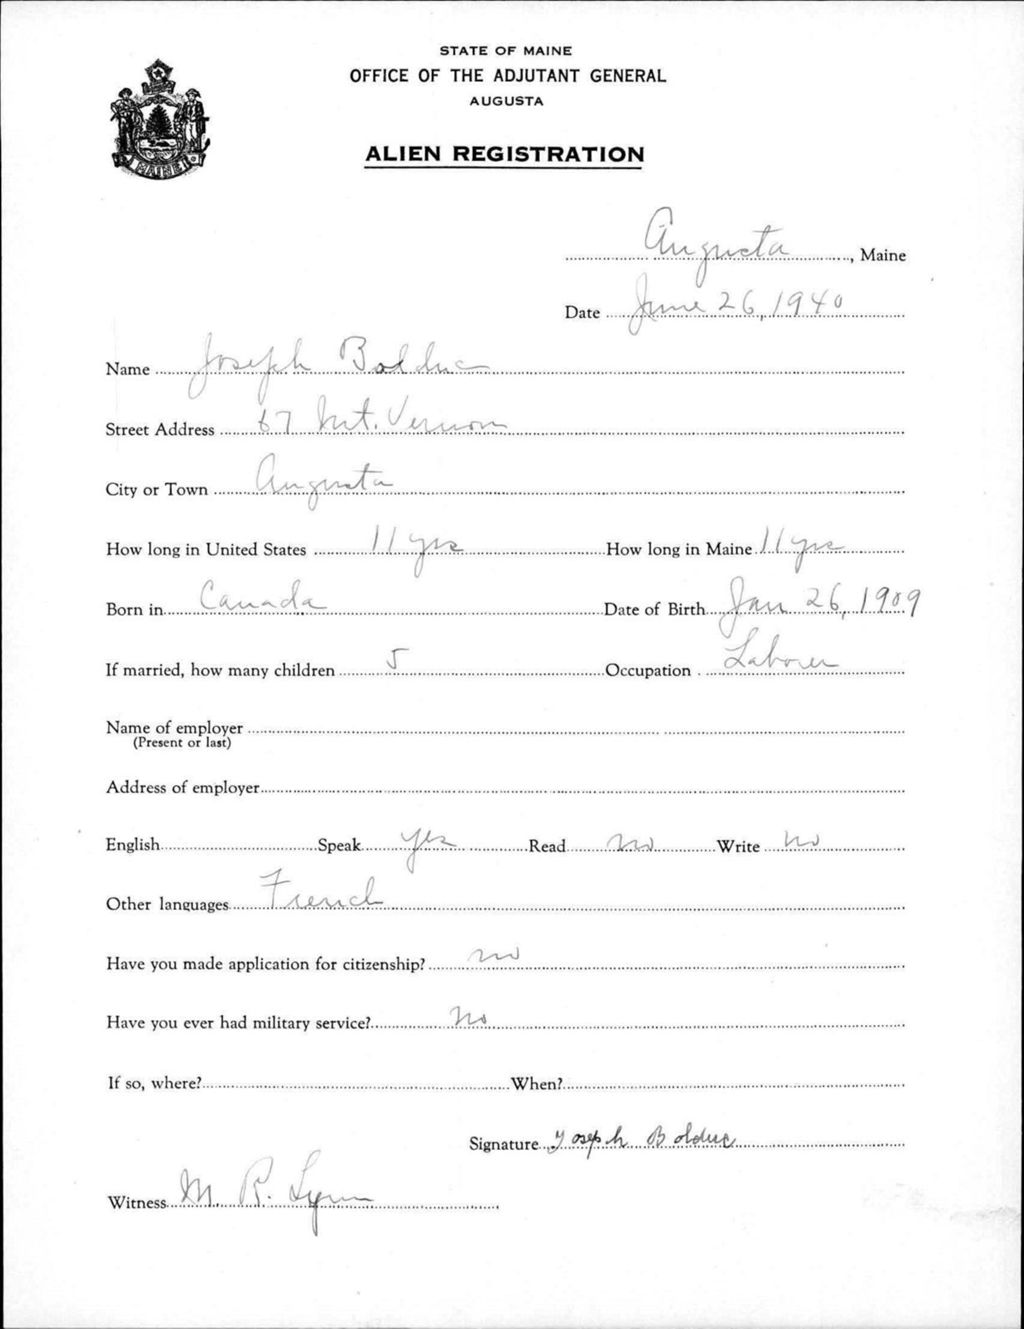 STATE OF MAINE
OFFICE OF THE ADJUTANT GENERAL
AUGUSTA
ALIEN REGISTRATION
MAINE
Augusta, Maine
Date June 26, 1940
Name Joseph Bolduc
Street Address 67 Mt. Vernon
City or Town Augusta
How long in United States 11 yrs How long in Maine 11 yrs
Born in Canada Date of Birth Jan 26, 1909
If married, how many children 5 Occupation Laborer
Name of employer
(Present or last)
Address of employer
English Speak yes Read no Write no
Other languages French
Have you made application for citizenship? no
Have you ever had military service? no
If so, where? When?
Signature Joseph Bolduc
Witness M. R. Lynn